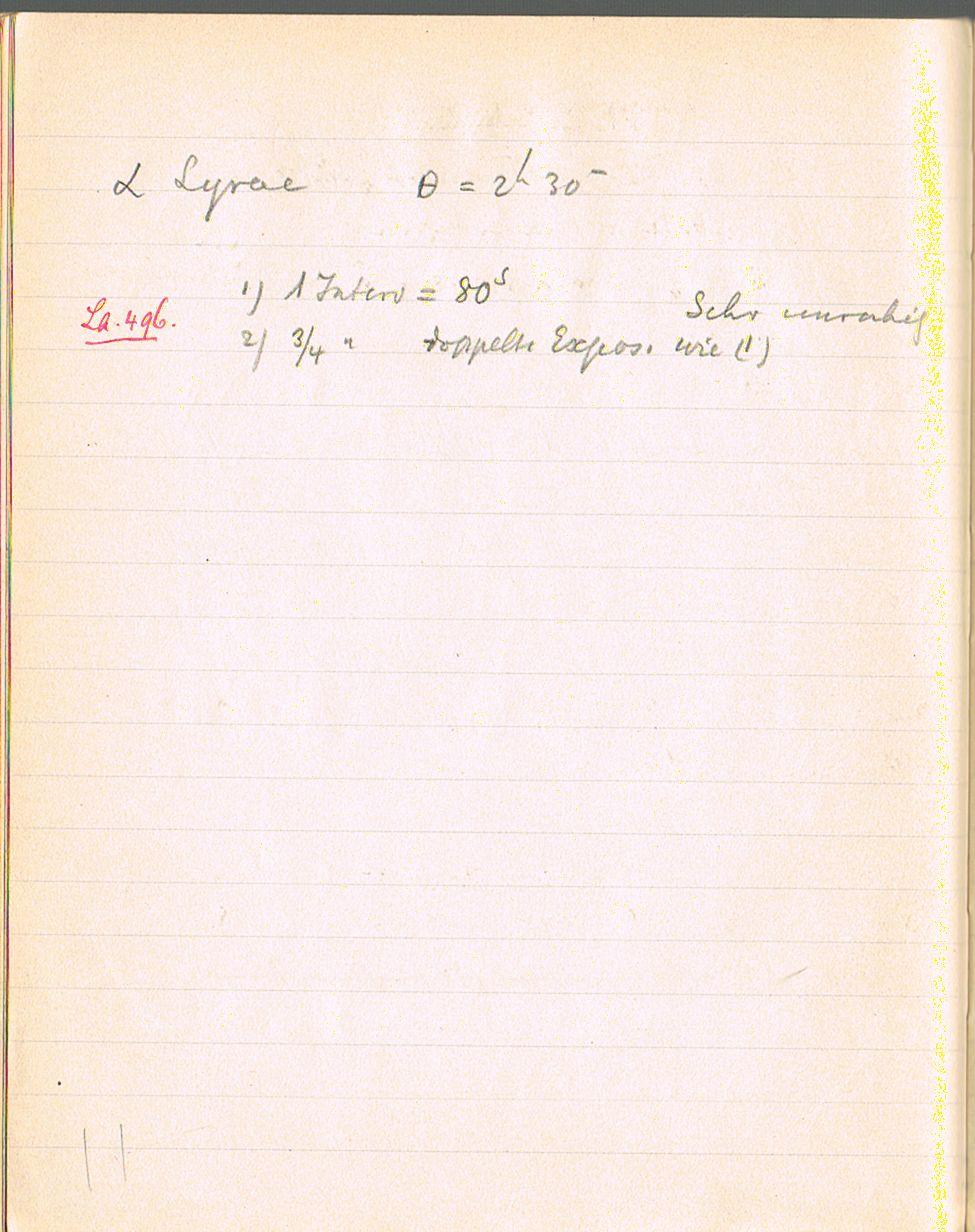 α Lyrae θ = 2h 30m
1) 1 Interv = 80s
Sehr unruhig
La. 496.
2) 3/4 " doppelte Expos. wie (1)